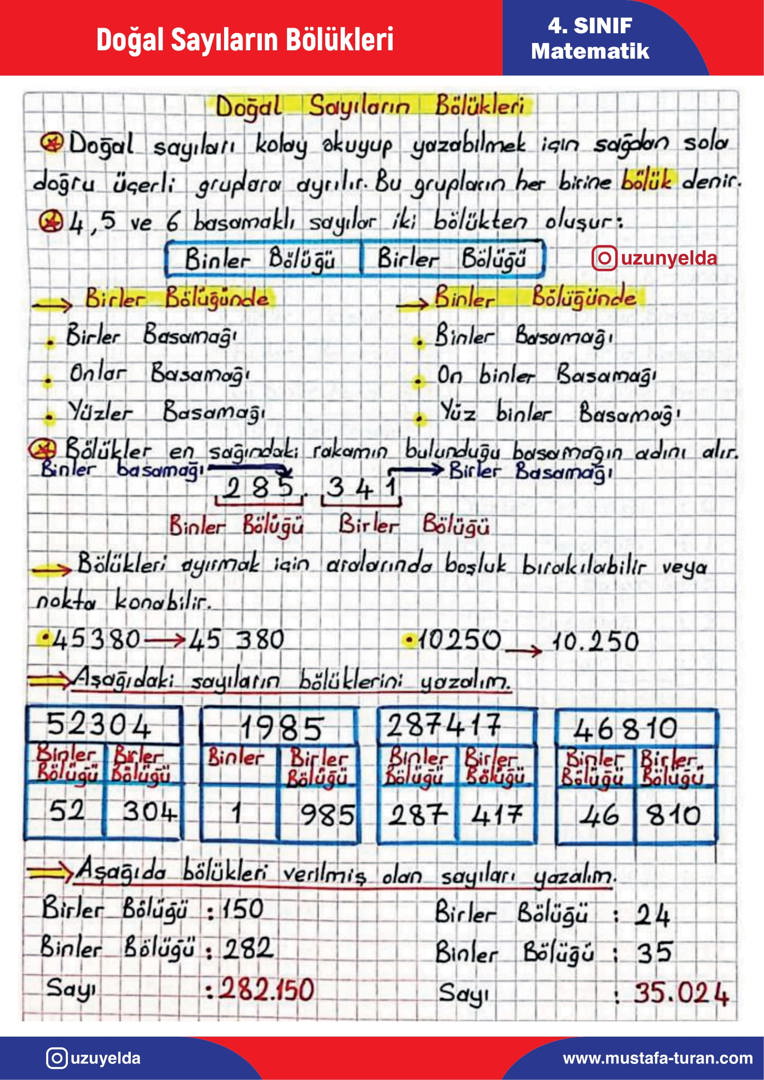 Doğal Sayıların Bölükleri
4. SINIF
Matematik
Doğal Sayıların Bölükleri
Doğal sayıları kolay okuyup yazabilmek için sağdan sola
doğru üçerli gruplara ayrılır. Bu grupların her birine bölük denir.
4,5 ve 6 basamaklı sayılar iki bölükten oluşur:
Binler Bölüğü Birler Bölüğü
uzunyelda
Birler Bölüğünde
Birler Basamağı
Onlar Basamağı
Yüzler Basamağı
Binler Bölüğünde
Binler Basamağı
On binler Basamağı
Yüz binler Basamağı
Bölükler en sağındaki rakamın bulunduğu basamağın adını alır.
Binler basamağı Birler Basamağı
285.341
Binler Bölüğü Birler Bölüğü
Bölükleri ayırmak için aralarında boşluk bırakılabilir veya
nokta konabilir.
45380→45 380 10250→10.250
Aşağıdaki sayıların bölüklerini yazalım.
52304
Binler Bölüğü Birler Bölüğü
52 304
1985
Binler Birler Bölüğü
1 985
287417
Binler Bölüğü Birler Bölüğü
287 417
46810
Binler Bölüğü Birler Bölüğü
46 810
Aşağıda bölükleri verilmiş olan sayıları yazalım.
Birler Bölüğü : 150
Binler Bölüğü : 282
Sayı : 282.150
Birler Bölüğü : 24
Binler Bölüğü : 35
Sayı : 35.024
uzuyelda
www.mustafa-turan.com